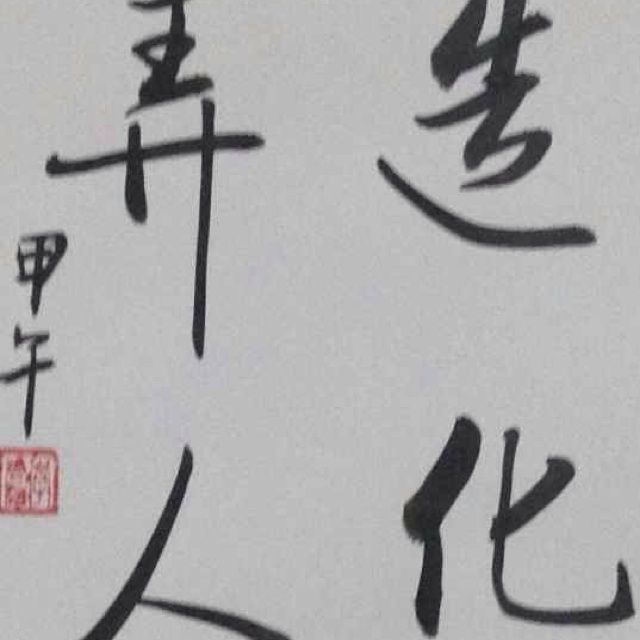 造化
弄人
甲午